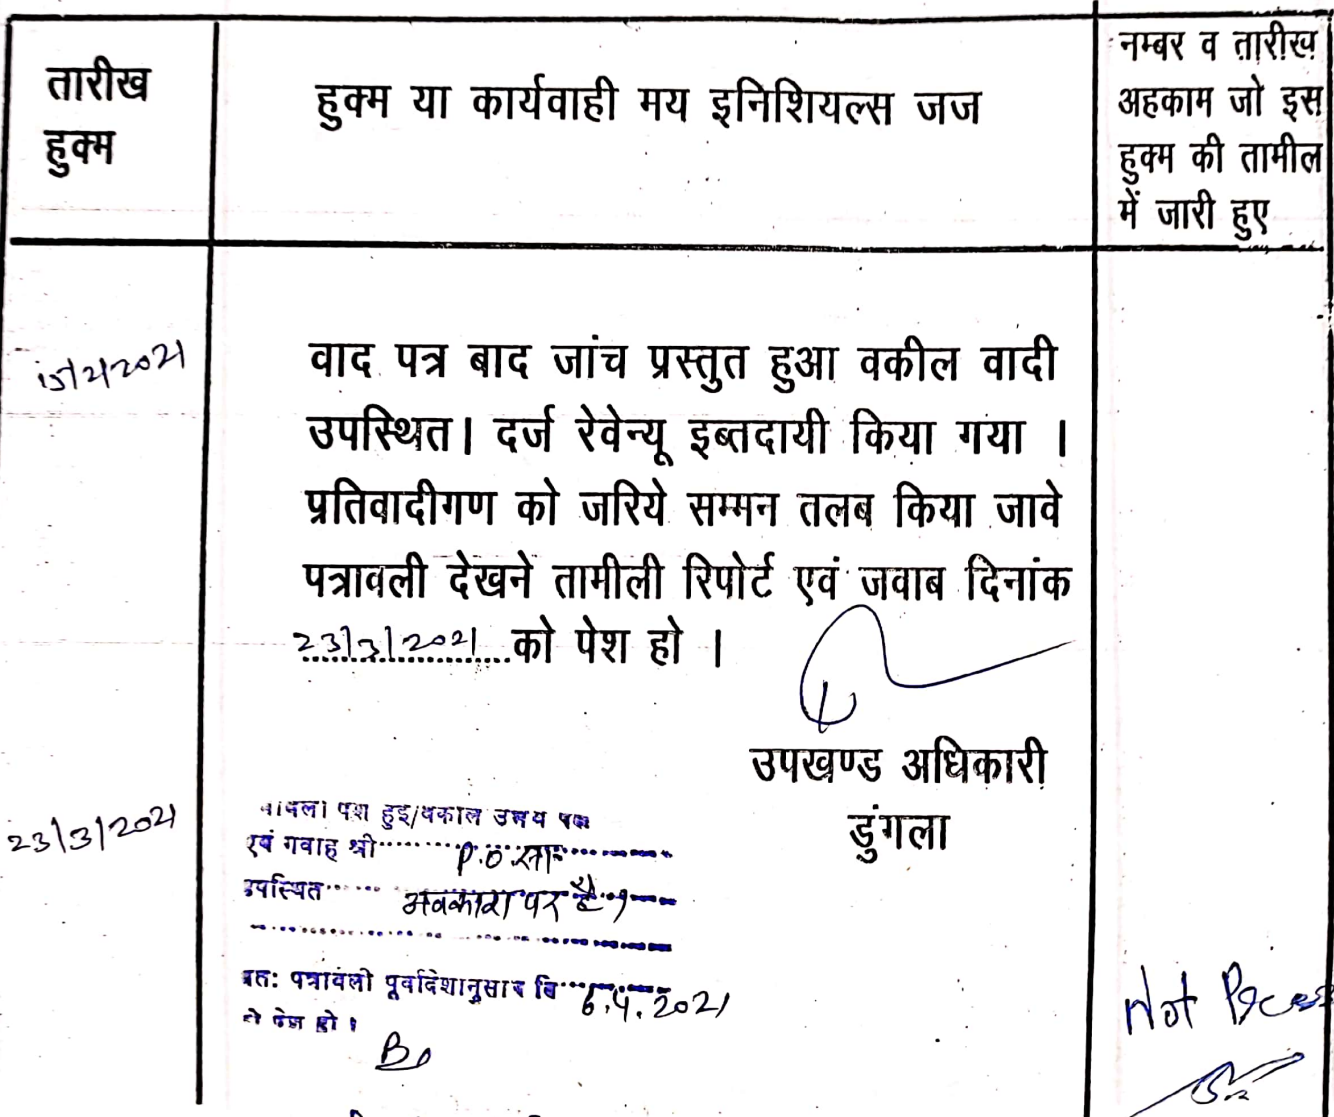 तारीख
हुक्म
हुक्म या कार्यवाही मय इनिशियल्स जज
नम्बर व तारीख
अहकाम जो इस
हुक्म की तामील
में जारी हुए
15/2/2021
वाद पत्र बाद जांच प्रस्तुत हुआ वकील वादी
उपस्थित। दर्ज रेवेन्यू इब्तदायी किया गया ।
प्रतिवादीगण को जरिये सम्मन तलब किया जावे
पत्रावली देखने तामीली रिपोर्ट एवं जवाब दिनांक
23/3/2021 को पेश हो ।
उपखण्ड अधिकारी
डुंगला
23/3/2021
पश हुई/वकील उभय पक्ष
एवं गवाह श्री P.O. सा.
उपस्थित अवकाश पर है।
पत्रावली पूर्वादेशानुसार दि 6.4.2021
को पेश हो ।
Not